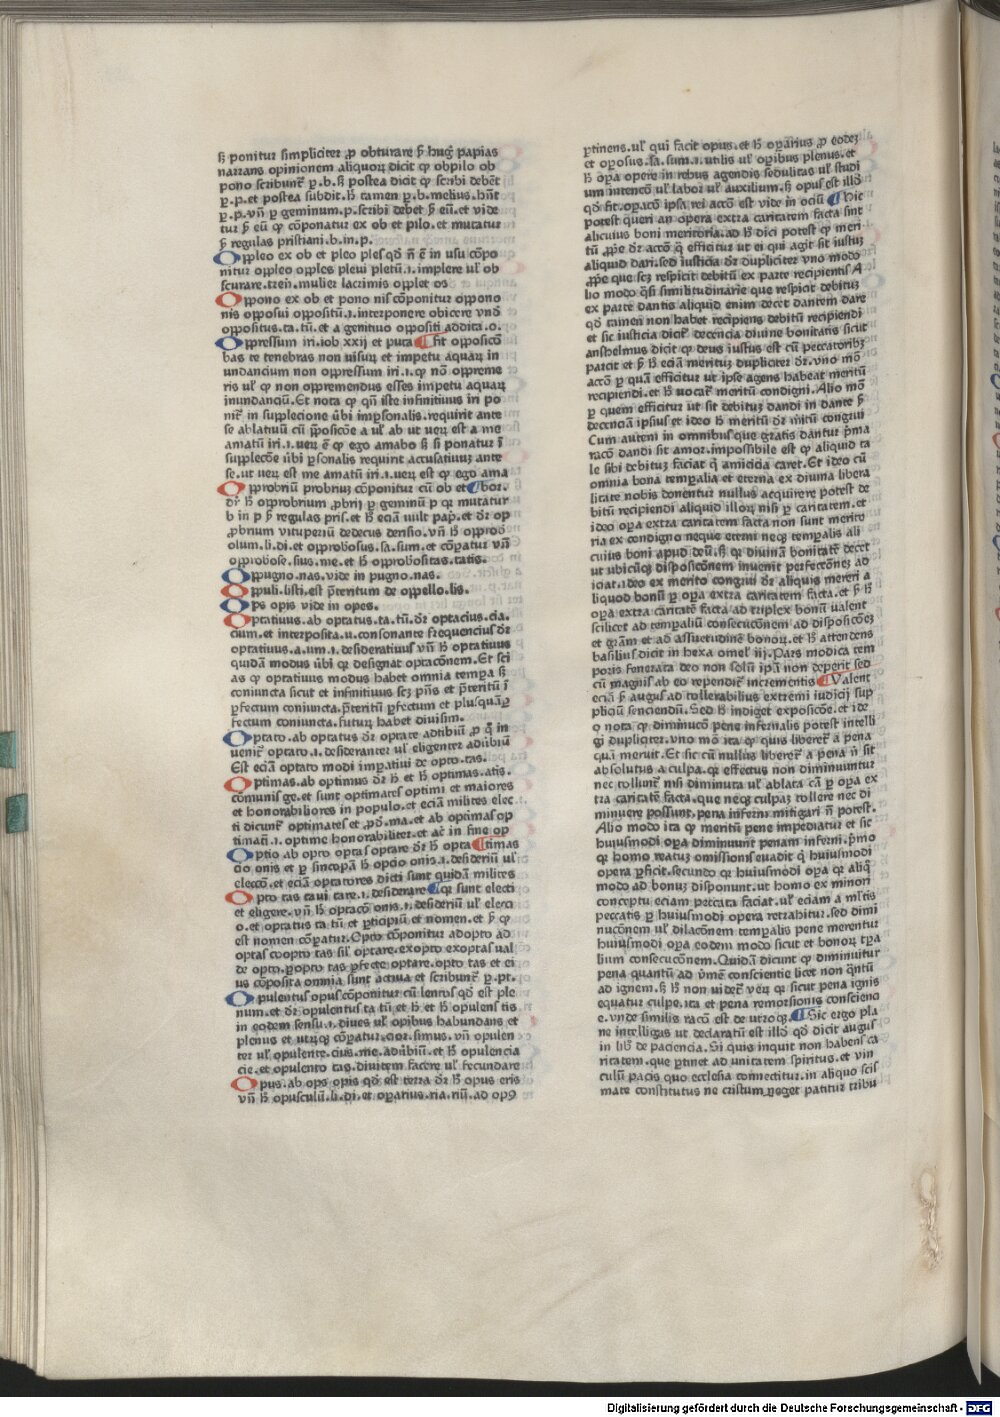 sꝫ ponitur simpliciter ꝓ obturare ẜm hug̃ papias
narrans opinionem aliquoꝝ dicit ꝙ obpilo ob
pono scribunt᷑ ꝑ .b. sꝫ postea dicit ꝙ scribi debēt
ꝑ .p. et postea subdit. hͦ tamen ꝑ .b. melius. hñt
ꝑ .p. vñ ꝑ geminum .p. scribi debet ẜm eū. et vide
tur ẜm eū ꝙ cōponatur ex ob et pilo. et mutatur
ẜm regulas prisciani .b. in .p.
Oppleo ex ob et pleo ples qđ nō ē in usu cōpo
nitur oppleo opples pleui pletū .i. implere ul' ob
scurare. tren. mulier lacrimis opplet os
Oppono ex ob et pono nis cōponitur oppono
nis opposui oppositū .i. interponere obicere vnđ
oppositus .ta. tū. et a genitiuo oppositi addita .o.
Oppressum iri. iob xxij et puta ¶ fit opposicō
bas te tenebras non uisuꝝ et impetu aquaꝝ in
undancium non oppressum iri .i. ꝙ nō oppreme
ris ul' ꝙ non oppremendus esses impetu aquaꝝ
inundanciū. Et nota ꝙ qñ iste infinitiuus in po
nit᷑ in supplecione ūbi impsonalis. requirit ante
se ablatiuū cū p̄posicōe a ul' ab ut ueꝝ est a me
amatū iri .i. ueꝝ ē ꝙ ego amabo sꝫ si ponatur ī
supplecōe ūbi ꝑsonalis requirit accusatiuuꝫ ante
se. ut ueꝝ est me amatū iri .i. ueꝝ est ꝙ ego ama
Opprobriū probriuꝫ cōponitur cū ob et ¶ bor.
dr̄ hͦ opprobrium ꝓbrij ꝑ geminū p qꝛ mutatur
b in p ẜm regulas pris. et hͦ eciā uult pap̄. et dr̄ op
ꝓbrium vituperiū dedecus derisio. vñ hͦ opprob
olum .li. di. et opprobosus .sa. sum. et cōꝑatur vñ
opprobose .sius. me. et hͦ opprobositas .tatis.
Oppugno .nas. vide in pugno .nas.
Oppuli .listi. est p̄teritum de oppello .lis.
Ops opis vide in opes.
Optatiuus. ab optatus .ta. tū. dr̄ optacius .cia.
cium. et interposita .u. consonante frequencius dr̄
optatiuus .a. um .i. desideratiuus vñ hͦ optatiuus
quidā modus ūbi qꝛ designat optacōnem. Et sci
as ꝙ optatiuus modus habet omnia tempa sꝫ
coniuncta sicut et infinitiuus scꝫ p̄ns et p̄teritū ī
ꝑfectum coniuncta. p̄teritū ꝑfectum et plusquāꝑ
fectum coniuncta. futuꝝ habet diuisim.
Optato. ab optatus dr̄ optate adūbiū. ꝓ q̄ in
uenit᷑ optato .i. desideranter ul' eligenter adūbiū
Est eciā optato modi impatiui de opto .tas.
Optimas. ab optimus dr̄ hͨ et hͦ optimas .atis.
cōmunis gē. et sunt optimates optimi et maiores
et honorabiliores in populo. et eciā milites elec
ti dicunt᷑ optimates et .ꝓđ. ma. et ab optimas op
timatī .i. optime honorabiliter. et ac̄ in fine op
Optio ab opto optas optare dr̄ hͨ opta ¶ timas
cio onis et ꝑ sincopā hͨ opcio onis .i. desideriū ul'
eleccō. et eciā optatores dicti sunt quidā milites
Opto tas taui tare .i. desiderare ¶ qꝛ sunt electi
et eligere. vñ hͨ optacō onis .i. desideriū ul' eleccı
o. et optatus ta tū et ꝑticipiū et nomen. et ẜm ꝙ
est nomen cōꝑatur. Opto cōponitur adopto ad
optas coopto tas sil' optare. exopto exoptas ual
de opto. ꝑopto tas ꝑfecte optare. opto tas et ei
us cōposita omnia sunt actiua et scribunt᷑ ꝑ .pt.
Opulentus opus cōponitur cū lentos qđ est ple
num. et dr̄ opulentus ta tū et hͨ et hͦ opulens tis
in eodem sensu .i. diues ul' opibus habundans et
plenus et utrūqꝫ cōꝑatur .cior. simus. vñ opulen
ter ul' opulente .cius. me. adūbiū. et hͨ opulencia
cie. et opulento tas. diuitem facere ul' fecundare
Opus. ab ops opis qđ est terra dr̄ hͦ opus eris
vñ hͦ opusculū .li. di. et oꝑarius .ria. riū. ad opꝰ
ꝑtinens. ul' qui facit opus. et hͦ oꝑarius ꝓ eodeꝫ
et oꝑosus .sa. sum .i. utilis ul' opibus plenus. et
hͨ oꝑa opere in rebus agendis sedulitas ul' studi
um intencō ul' labor ul' auxilium. sꝫ opus est illđ
qđ fit. oꝑacō ipsa rei accō est vide in ociū ¶ Hic
potest queri an opera extra caritatem facta sint
alicuius boni meritoria. ad hͦ dici potest ꝙ meri
tū ꝓprie dr̄ accō q̄ efficitur ut ei qui agit sit iustuꝫ
aliquid dari. sed iusticia dr̄ dupliciter vno modo
ꝓprie que scꝫ respicit debitū ex parte recipientis A
lio modo q̄si similitudinarie que respicit debituꝫ
ex parte dantis aliquid enim decet dantem dare
qđ tamen non habet recipiens debitū recipiendi
et sic iusticia dicit᷑ decencia diuine bonitatis sicut
anshelmus dicit ꝙ deus iustus est cū peccatoribꝫ
parcit et ẜm hͦ eciā merituꝫ dupliciter dr̄. vno mō
accō ꝑ quā efficitur ut ipse agens habeat meritū
recipiendi. et hͦ uocat᷑ meritū condigni. Alio mō
ꝑ quem efficitur ut sit debituꝫ dandi in dante ẜm
decenciā ipsius et ideo hͦ meritū dr̄ m̄itū congrui
Cum autem in omnibus que gratis dantur p̄ma
racō dandi sit amor. impossibile est ꝙ aliquid ta
le sibi debituꝫ faciat q̄ amicicia caret. Et ideo cū
omnia bona tempalia et eterna ex diuina libera
litate nobis donentur nullus acquirere potest de
bitū recipiendi aliquid illoꝝ nisi ꝑ caritatem. et
ideo oꝑa extra caritatem facta non sunt merito
ria ex condigno neque eterni neqꝫ tempalis ali
cuius boni apud deū. sꝫ qꝛ diuinā bonitatē decet
ut ubicūqꝫ disposicōnem inuenit perfeccōneꝫ ad
iciat. ideo ex merito congrui dr̄ aliquis mereri a
liquod bonū ꝑ oꝑa extra caritatem facta. et ẜm hͦ
oꝑa extra caritatē facta ad triplex bonū ualent
scilicet ad tempaliū consecucōnem ad disposicōeꝫ
et grām et ad assuetudinē bonoꝝ. et hͦ attendens
basilius dicit in hexa omel' iij. Pars modica tem
poris fenerata deo non solū ipā non deperit sed
cū magnis ab eo rependit᷑ incrementis ¶ Valent
eciā ẜm augꝰ ad tollerabilius extremi iudicij sup
pliciū senciendū. Sed hͦ indiget exposicōe. et ide
o nota ꝙ diminucō pene infernalis potest intelli
gi dupliciter. vno mō ita ꝙ quis liberet᷑ a pena
quā meruit. Et sic cū nullus liberet᷑ a pena nͥ sit
absolutus a culpa. qꝛ effectus non diminuuntur
nec tollunt᷑ nisi diminuta ul' ablata cā ꝑ oꝑa ex
tra caritatē facta. que neqꝫ culpaꝫ tollere nec di
minuere possunt. pena inferni mitigari nō potest.
Alio modo ita ꝙ meritū pene impediatur et sic
huiusmodi oꝑa diminuunt penam inferni. p̄mo
qꝛ homo reatuꝫ omissionis euadit q̄ huiusmodi
opera ꝑficit. secundo qꝛ huiusmodi oꝑa qꝛ aliq̄
modo ad bonuꝫ disponunt. ut homo ex minori
conceptu eciam peccata faciat. ul' eciam a m̄ltis
peccatis ꝑ huiusmodi opera retrahitur. sed dimi
nucōnem ul' dilacōnem tempalis pene merentur
huiusmodi oꝑa eodem modo sicut et bonoꝝ tꝑa
lium consecucōnem. Quidā dicunt ꝙ diminuitur
pena quantū ad v̄mē conscientie licet non q̄ntū
ad ignem. sꝫ hͦ non uidet᷑ veꝝ qꝛ sicut pena ignis
equatur culpe. ita et pena remorsionis conscienci
e. vnde similis racō est de utroqꝫ. ¶ Sic ergo pla
ne intelligas ut declaratū est illđ qđ dicit augꝰ
in libͦ de paciencia. Si quis inquit non habens ca
ritatem. que ꝑtinet ad unitatem spiritus. et vin
culū pacis quo ecclesia connectitur. in aliquo scis
mate constitutus ne cristum ꝓneget patitur tribu
Digitalisierung gefördert durch die Deutsche Forschungsgemeinschaft - DFG